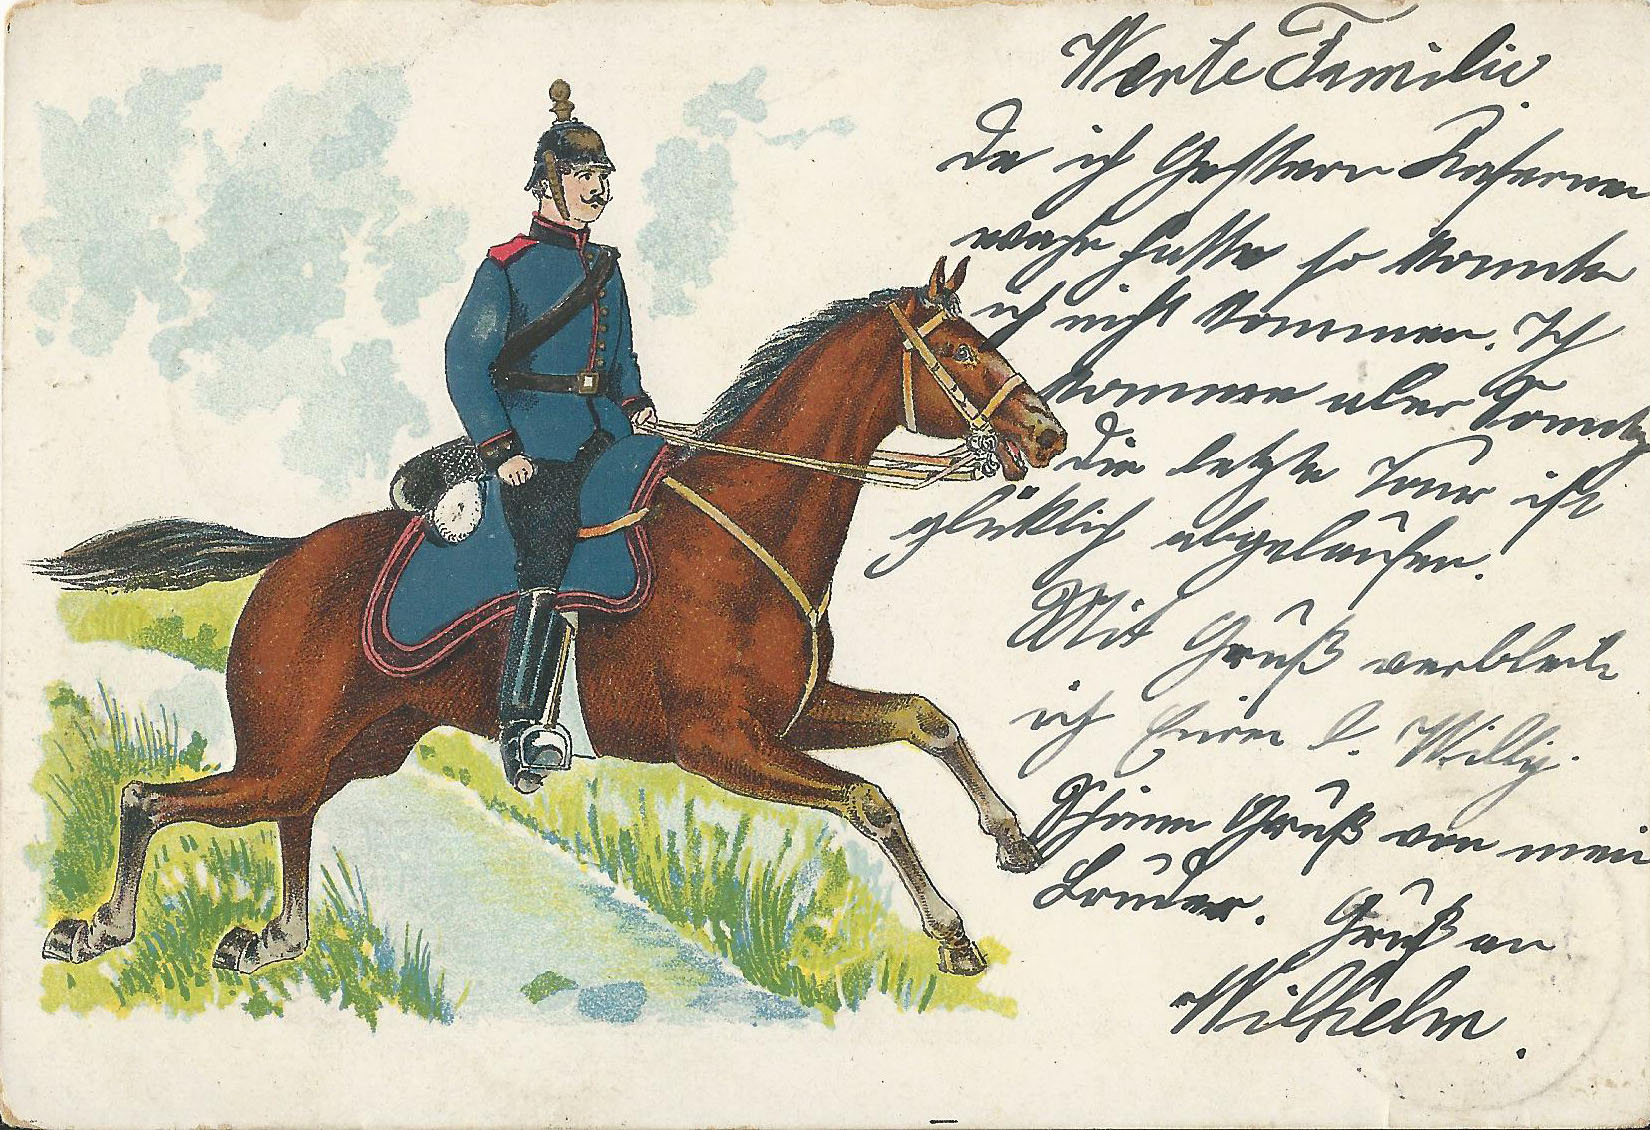 Werte Familie
Da ich Gestern Kasernen
wache hatte so konnte
ich nicht kommen. Ich
komme aber Sonntag
Die letzte Tour ist
glüklich abgelaufen.
Mit Gruß verbleibe
ich Euer l. Willy.
Schönen Gruß von mein
Bruder. Gruß an
Wilhelm.